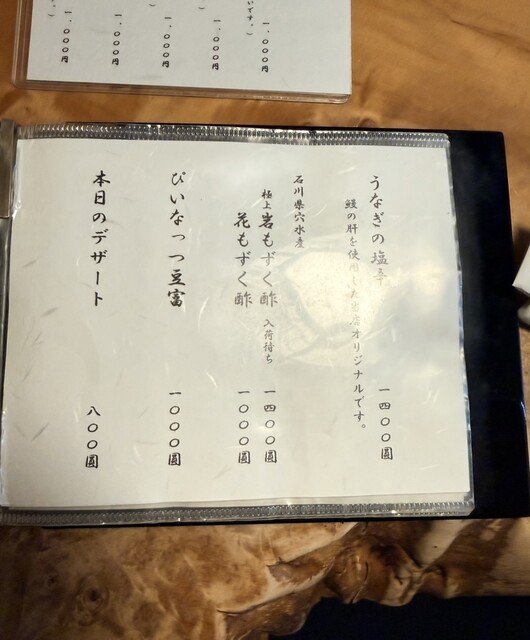 いです。)
一、〇〇〇円
一、〇〇〇円
一、〇〇〇円
一、〇〇〇円
一、〇〇〇円
うなぎの塩辛 一四〇〇圓
鰻の肝を使用した当店オリジナルです。
石川県穴水産
極上 岩もずく酢 入荷待ち 一四〇〇圓
花もずく酢 一〇〇〇圓
ぴいなっつ豆富 一〇〇〇圓
本日のデザート 八〇〇圓